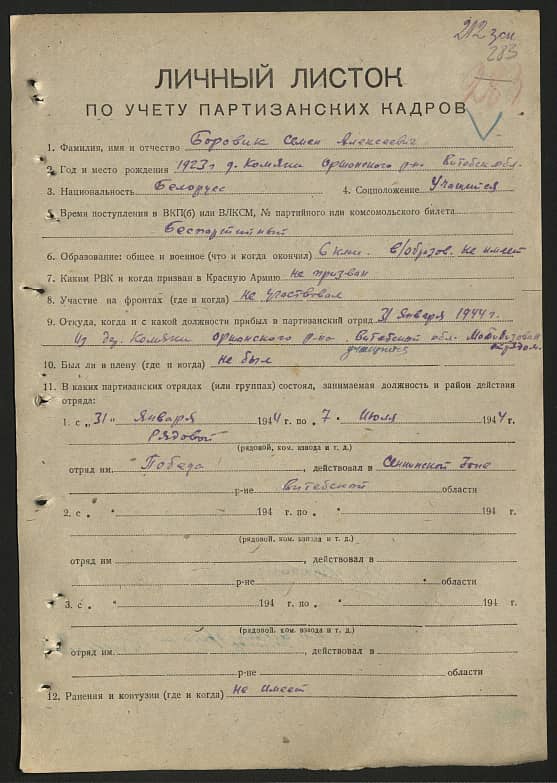 212 зсп
283
ЛИЧНЫЙ ЛИСТОК
ПО УЧЕТУ ПАРТИЗАНСКИХ КАДРОВ
1. Фамилия, имя и отчество Боровик Семен Алексеевич
2. Год и место рождения 1923 г д. Комяки Оршанского р-на Витебск обл.
3. Национальность Белорусс 4. Соцположение Учащийся
5. Время поступления в ВКП(б) или ВЛКСМ, № партийного или комсомольского билета
Беспартийный
6. Образование: общее и военное (что и когда окончил) 6 клас. в/образов. не имеет
7. Каким РВК и когда призван в Красную Армию не призван
8. Участие на фронтах (где и когда) не участвовал
9. Откуда, когда и с какой должности прибыл в партизанский отряд 31 января 1944 г.
Из дер. Комяки Оршанского р-на Витебской обл. Мобилизован
учащийся отрядом.
10. Был ли в плену (где и когда) не был
11. В каких партизанских отрядах (или группах) состоял, занимаемая должность и район действия
отряда:
1. с „31" января 1944 г. по „7" Июля 1944 г.
Рядовой
(рядовой, ком. взвода и т. д.)
отряд им. Победа, действовал в Сенненской зоне
р-не Витебской области
2. с „ " 194 г. по „ " 194 г.
(рядовой, ком. взвода и т. д.)
отряд им , действовал в
р-не области
3. с „ " 194 г. по „ " 194 г.
(рядовой, ком. взвода и т. д.)
отряд им. , действовал в
р-не области
12. Ранения и контузии (где и когда) не имеет